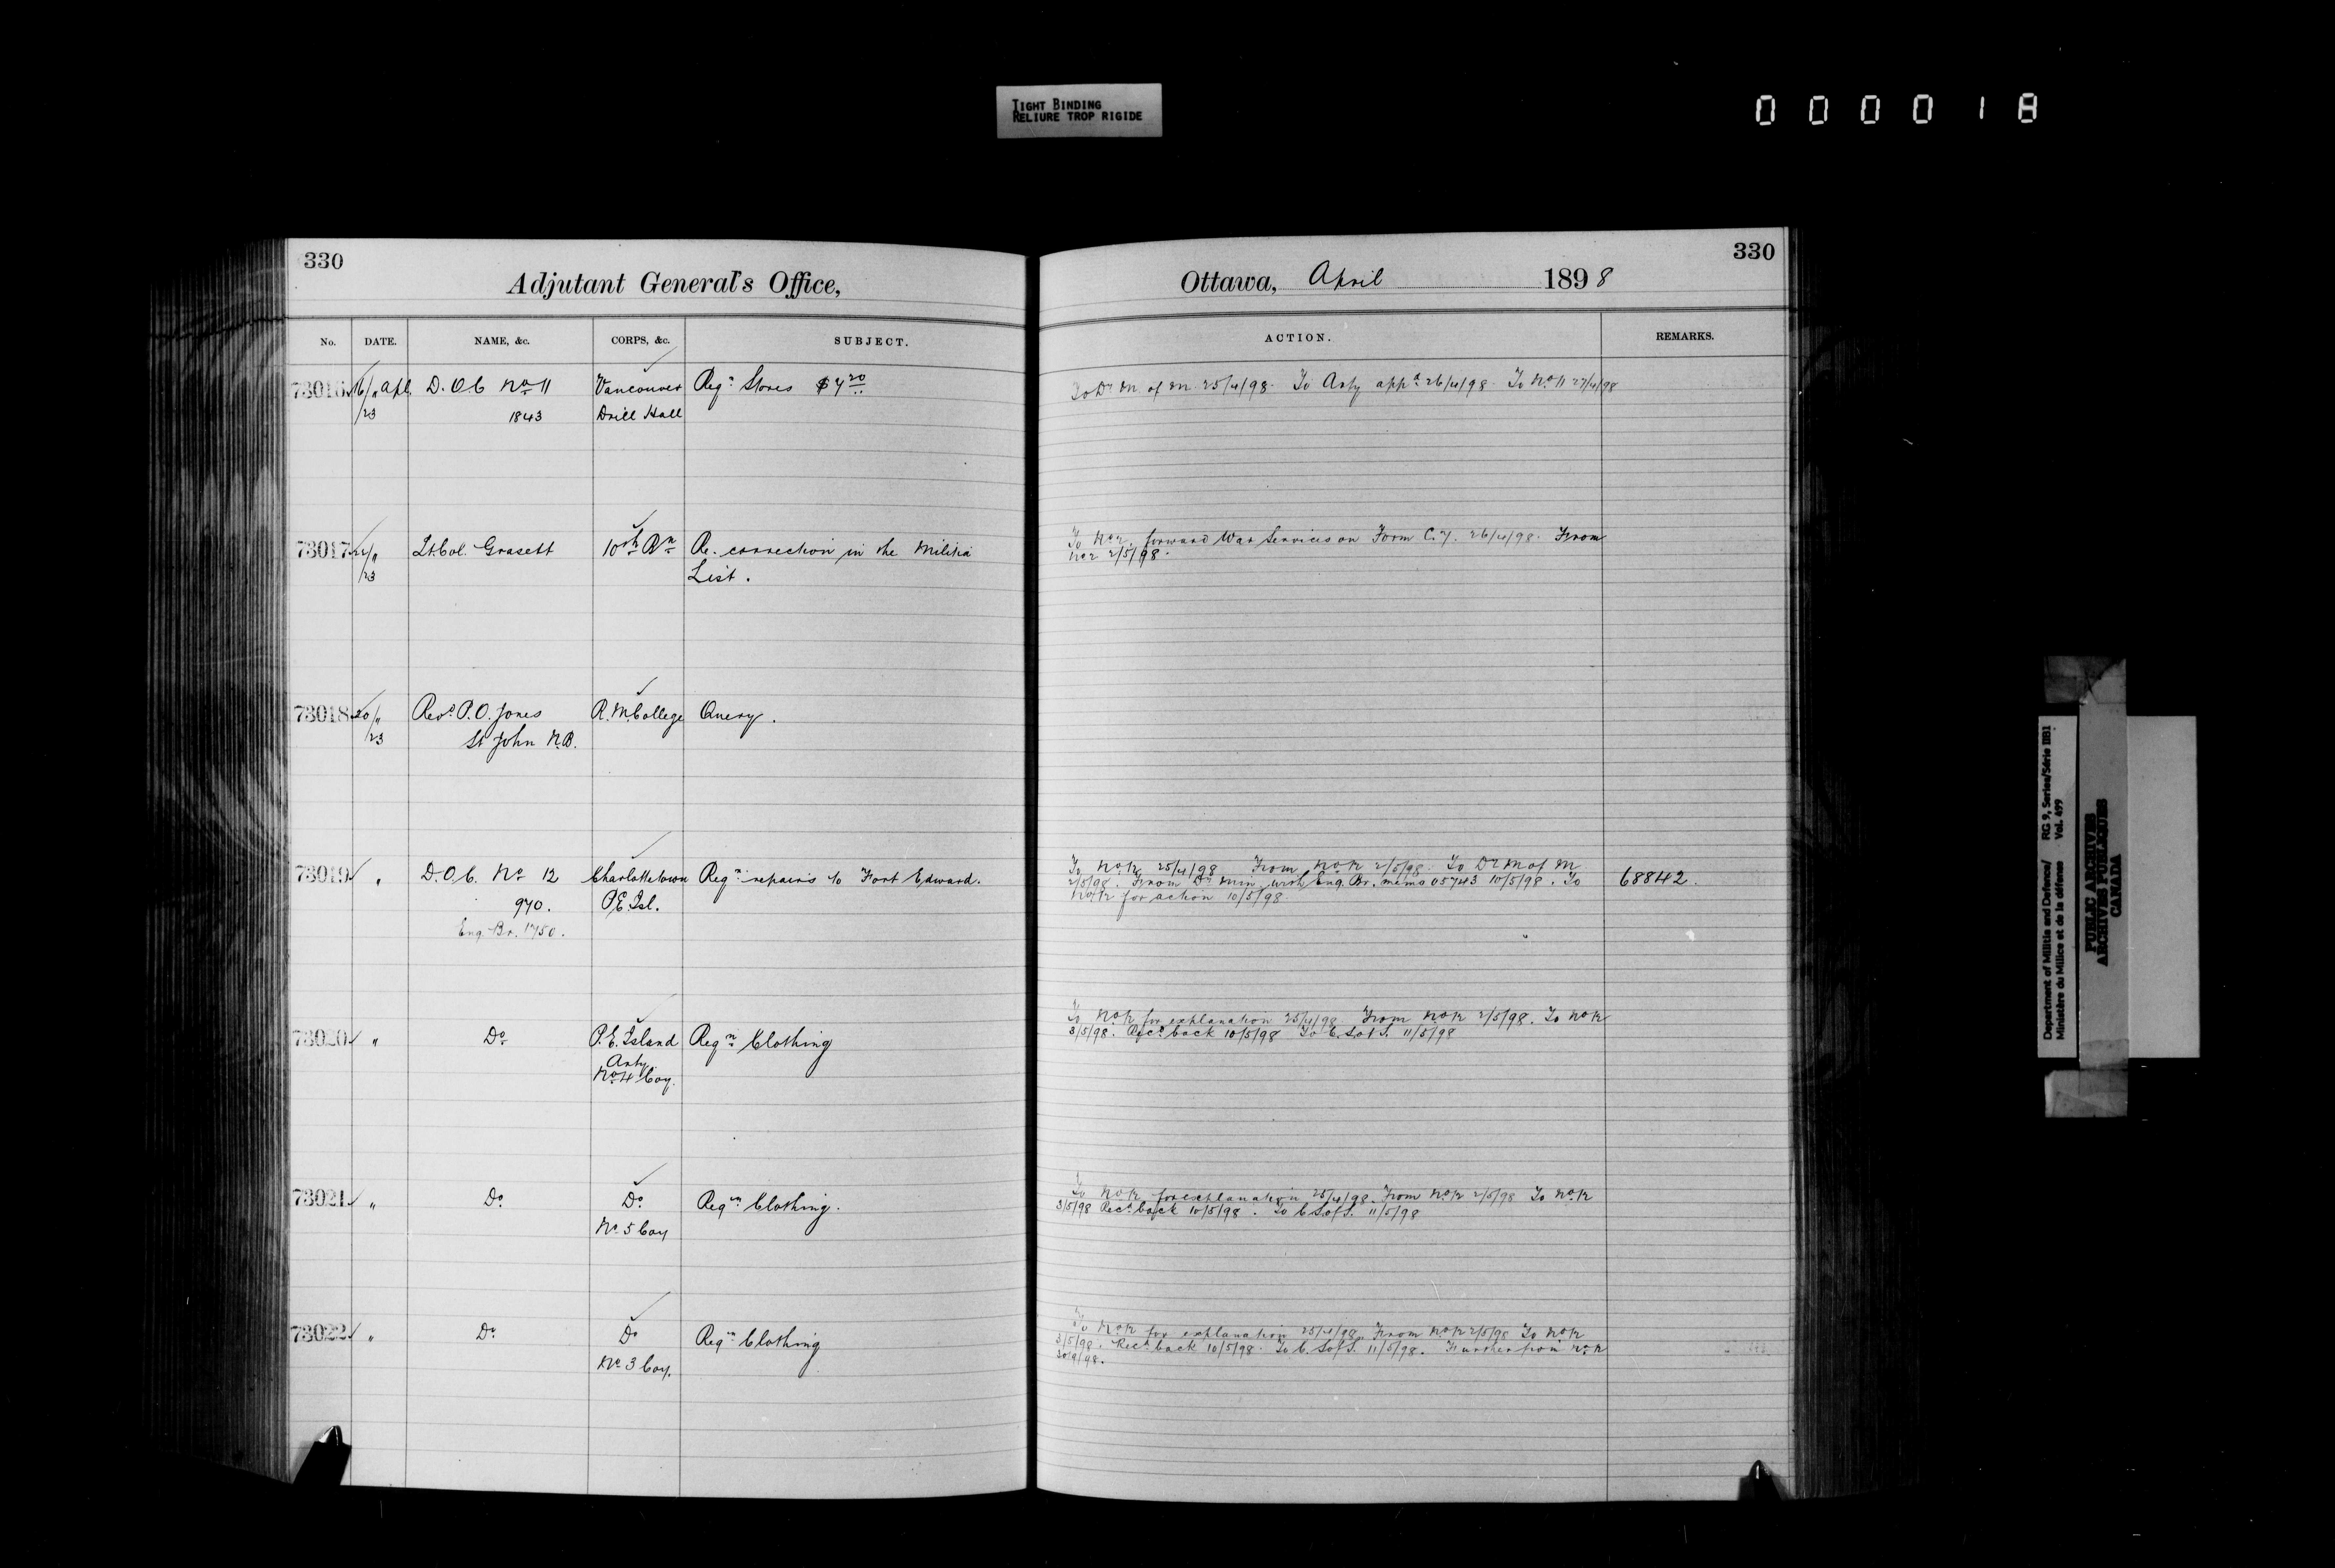 TIGHT BINDING
RELIURE TROP RIGIDE
000018
330
Adjutant General's Office,
No. DATE. NAME, &c. CORPS, &c. SUBJECT.
73016 16/" Apl. D.O.C. No 11 Vancouver Reqn Stores $4 20
/23 1843 Drill Hall
73017 /" Lt. Col. Grasett 10th Rn Re. correction in the Militia
/23 List.
73018 20/" Revd P.O. Jones R.M. College Query.
/23 St John N.B.
73019 " D.O.C. No 12 Charlottetown Reqn repairs to Fort Edward.
970. P.E. Isl.
Eng. Br. 1750.
73020 " Do P.E. Island Reqn Clothing
Arty
No 4 Coy.
73021 " Do Do Reqn Clothing.
No 5 Coy
73022 " Do Do Reqn Clothing
No 3 Coy.
330
Ottawa, April 1898
ACTION. REMARKS.
To Dr M. of M. 25/4/98. To Arty appd 26/4/98. To No 11 27/4/98
To No 2. forward War Services on Form C.7. 26/4/98. From
No 2 2/5/98.
To No 12 25/4/98 From No 12 2/5/98. To Dr M of M
2/5/98. From Dr Min with Eng. Br. memo 05743 10/5/98. To 68842.
No 12 for action 10/5/98.
To No 12 for explanation 25/4/98. From No 12 2/5/98. To No 12
3/5/98. Recd back 10/5/98 To C.S. of S. 11/5/98
To No 12 for explanation 25/4/98. From No 12 2/5/98 To No 12
3/5/98 Recd back 10/5/98. To C.S. of S. 11/5/98
To No 12 for explanation 25/4/98. From No 12 2/5/98 To No 12
3/5/98. Recd back 10/5/98. To C.S. of S. 11/5/98. Further from No 12
30/9/98.
Department of Militia and Defence/ RG 9, Series/Série IIB1
Ministère du Milice et de la défense Vol. 499
PUBLIC ARCHIVES
ARCHIVES PUBLIQUES
CANADA